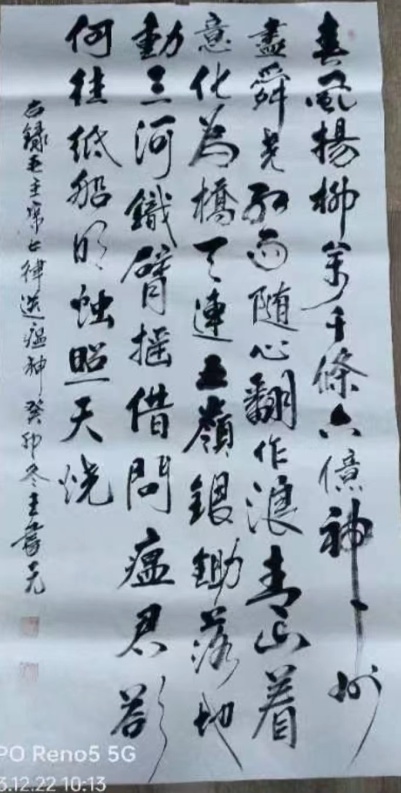 春風揚柳萬千條六億神州
盡舜堯紅雨随心翻作浪青山着
意化為橋天連五嶺銀鋤落地
動三河鐵臂摇借問瘟君欲
何往紙船明燭照天烧
右録毛主席七律送瘟神癸卯冬王元
PO Reno5 5G
3.12.22 10:13